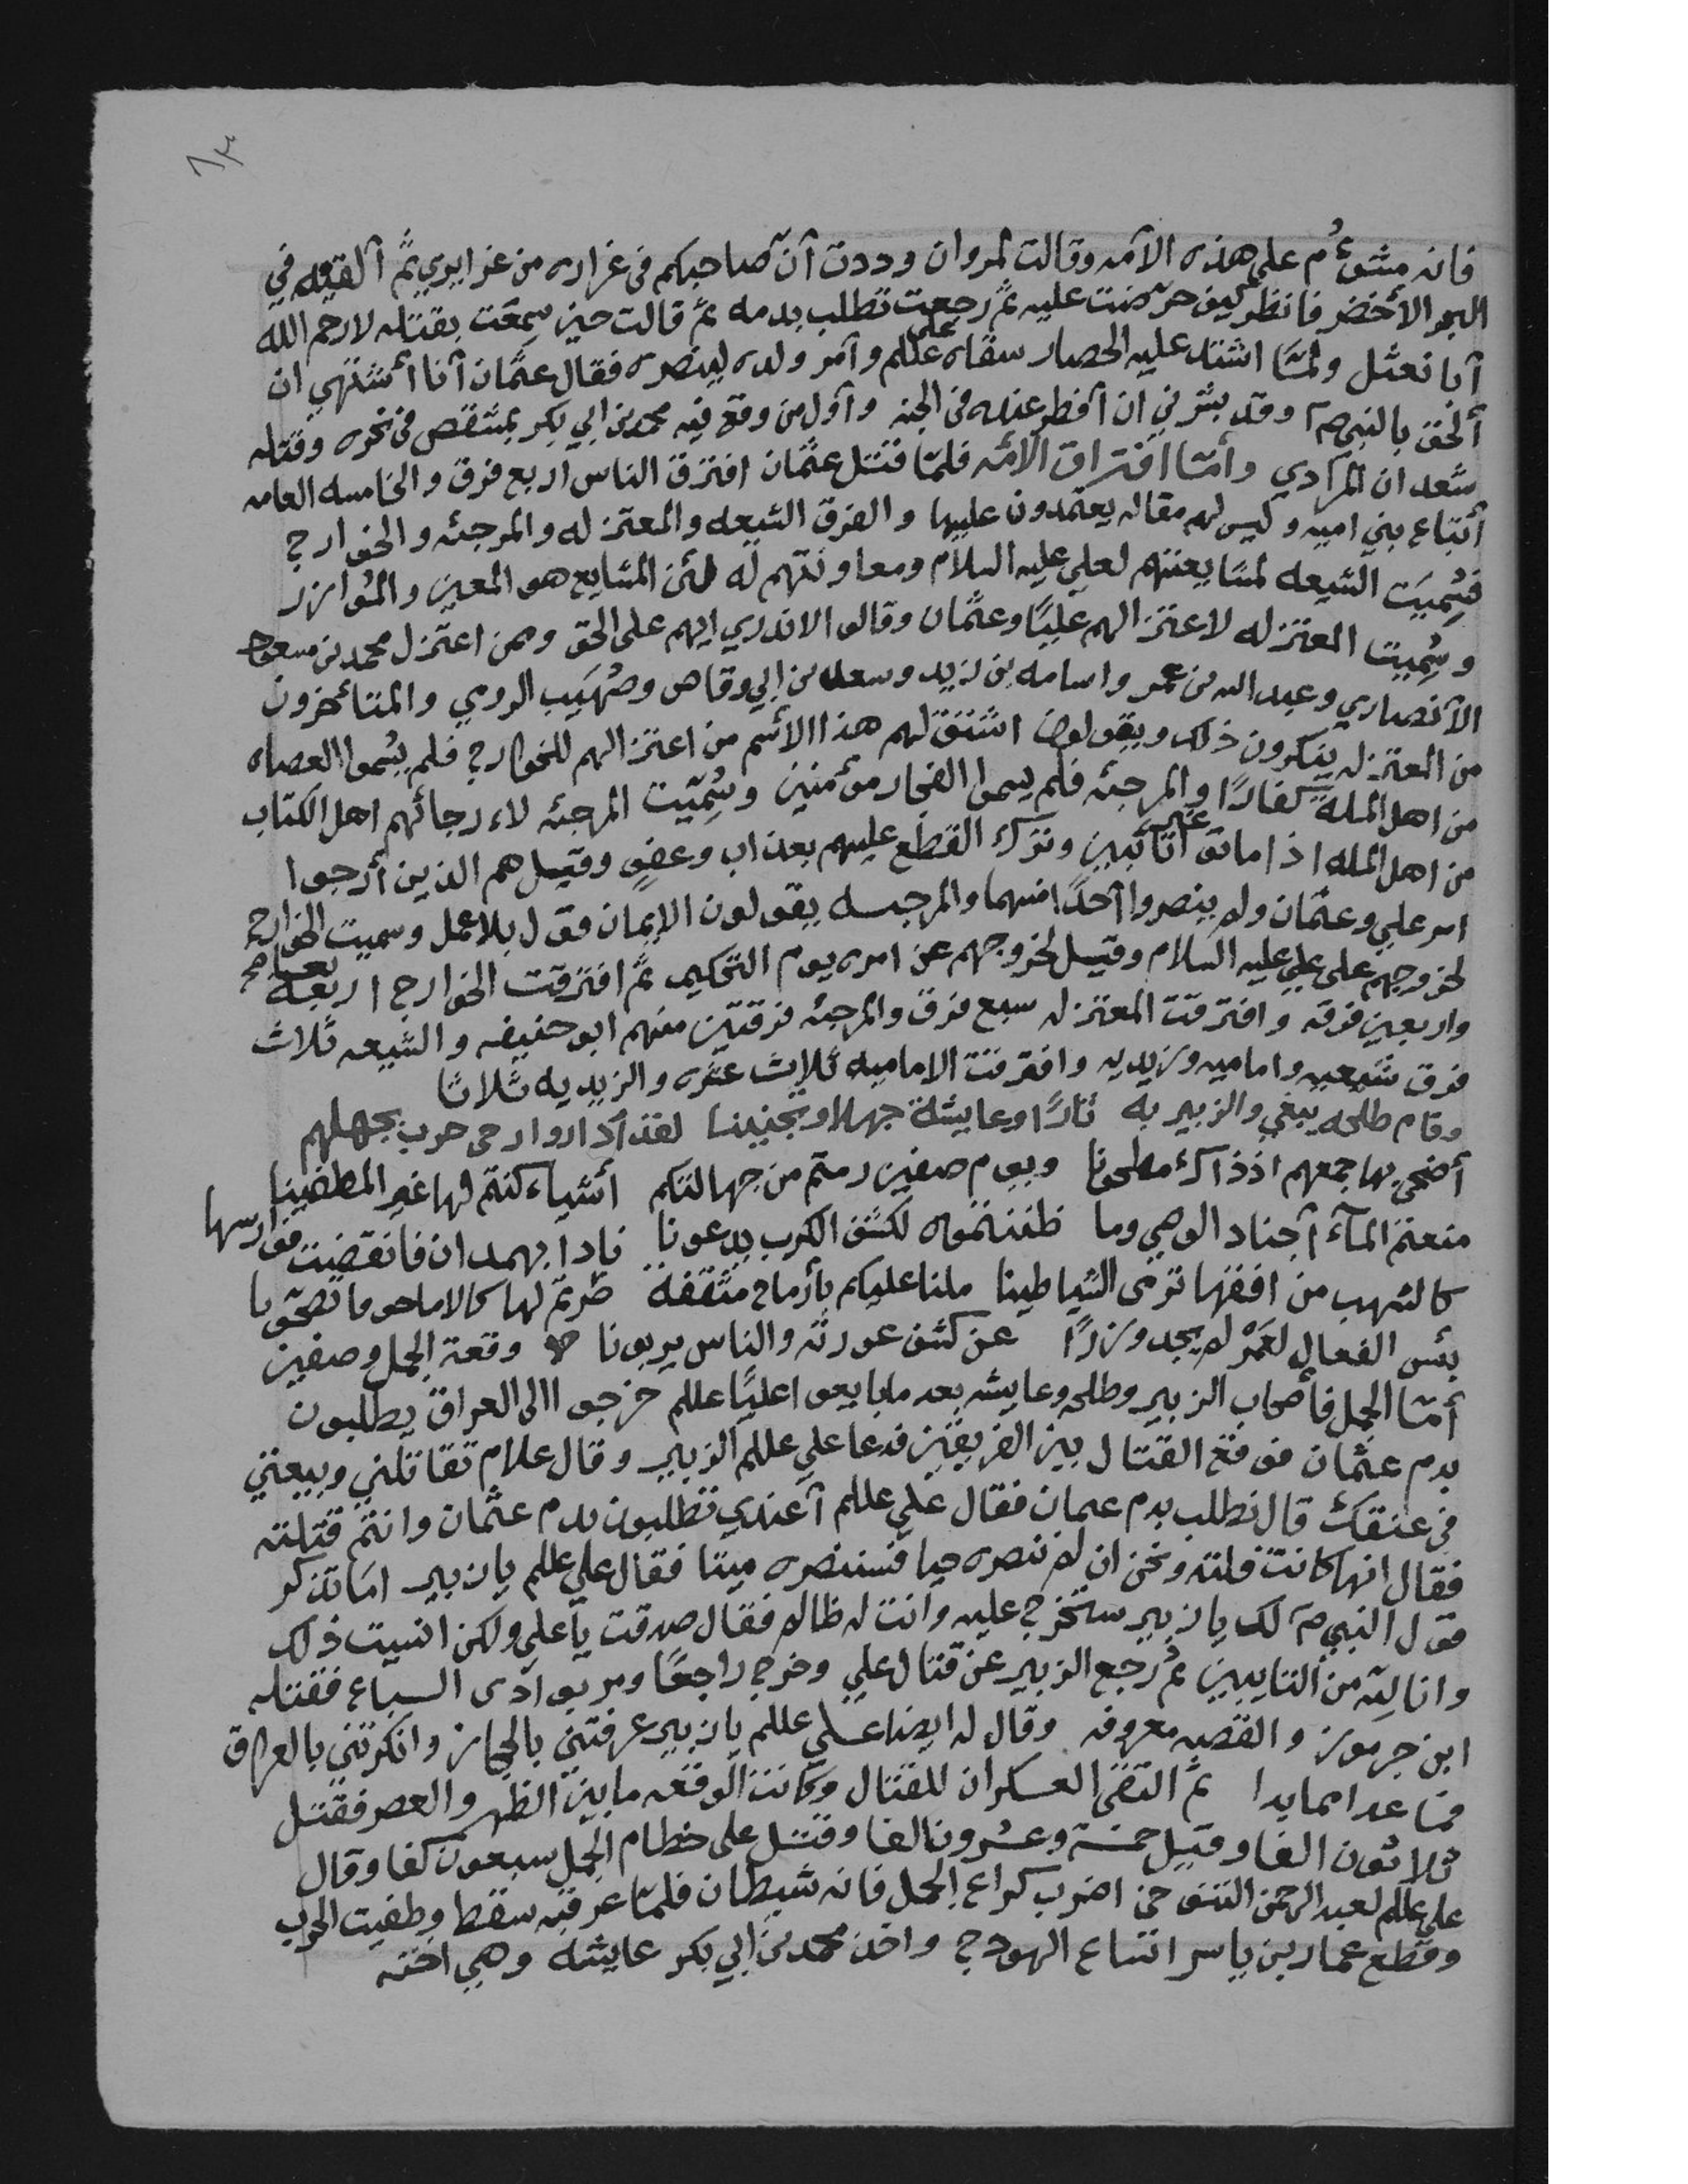 ٨٣
فانه مشؤم على هذه الأمه وقالت لمروان وددت أن صاحبكم فى غراره من غرايري ثم ألقيه في
البحر الأخضر فانظر كيف حرّضت عليه ثم رجعت تطلب بدمه ثم قالت حين سمعت بقتله لا رحم الله
أبا نعثل ولمّا اشتد عليه الحصار سقاه علي علىلم وأمر ولده لينصره فقال عثمان أنا أشتهي ان
ألحق بالنبي صم وقد بشرني ان أفطر عنده فى الجنه وأول من وقع فيه محمد بن ابي بكر بمشقص فى نحره وقتله
سعدان المرادي وأمّا افتراق الأمه فلمّا قتل عثمان افترق الناس اربع فرق والخامسه العامه
أتباع بني اميه وليس لهم مقاله يعتمدون عليها والفرق الشيعه والمعتزله والمرجئه والخوارج
فسُميَت الشيعه لمشايعتهم لعلي عليه السلام ومعاونتهم له لأن المشايع هو المعين والمُوازر
وسُميت المعتزله لاعتزالهم عليًا وعثمان وقالوا لا ندري ايهم على الحق وممن اعتزل محمد بن مسعود
الأنصاري وعبد الله بن عمر واسامه بن زيد وسعد بن ابي وقاص وصُهَيب الرومي والمتأخرون
من المعتزله ينكرون ذلك ويقولون اشتق لهم هذا الأسم من اعتزالهم للخوارج فلم يسُموا العصاه
من اهل المله كفارًا والمرجئه فلم يسموا الفجار مؤمنين وسُمّيت المرجئه لاءرجائهم اهل الكتاب
من اهل المله اذا ماتوا غير تائبين وترك القطع عليهم بعذاب وعفو وقيل هم الذين أرجوا
امر علي وعثمان ولم ينصروا أحدًا منهما والمرجيه يقولون الإيمان قول بلا عمل وسميت الخوارج
لخروجهم على علي عليه السلام وقيل لخروجهم عن امره يوم التحكيم ثم افترقت الخوارج اربعة
واربعين فرقه وافترقت المعتزله سبع فرق والمرجئه فرقتين منهم ابو حنيفه والشيعه ثلاث
فرق شيعيه واماميه وزيديه وافترقت الاماميه ثلاث عشره والزيديه ثلاثا
وقام طلحه يبغي والزبير به ثارًا وعايشة جهلا وتجنينا لقد أداروا رحى حرب بجهلهم
أضحى بها جمعهم اذ ذاك مطحونا ويوم صفين رمتم من جهالتكم أشياء كنتم لها غير المطيقينا
منعتم المآء أجناد الوصي وما ظننتموه لكشف الكرب يدعونا نادا بهمدان فانقضت فوارسها
كالشهب من افقها ترمى الشياطينا ملنا عليكم بأرماح مثقفة
بئس الفعال لعَمرٌ لم يجد وزرًا عن كشف عورته والناس يربونا وقعة الجمل وصفين
أمّا الجمل فأصحاب الزبير وطلحه وعايشه بعد ما بايعوا عليًا علىلم خرجوا الى العراق يطلبون
بدم عثمان فوقع القتال بين الفريقين فدعا علي علىلم الزبير وقال علام تقاتلني وبيعتي
فى عنقك قال نطلب بدم عثمان فقال علي علىلم أعندي تطلبون بدم عثمان وانتم قتلته
فقال انها كانت فلته ونحن ان لم ننصره حيا فسننصره ميتا فقال علي علىلم يا زبير اما تذكر
قول النبي صم لك يا زبير ستخرج عليه وانت له ظالم فقال صدقت يا علي ولكن انسيت ذلك
وانا لِله من التايبين ثم رجع الزبير عن قتال علي وخرج راجعًا ومر بوادى السباع فقتله
ابن جرموز والقصه معروفه وقال له ايضا علي علىلم يا زبير عرفتني بالحجاز وانكرتني بالعراق
فما عدا مما بدا ثم التقى العسكران للقتال وكانت الوقعه ما بين الظهر والعصر فقتل
ثلاثون الفا وقيل خمسة وعشرون الفا وقتل على خطام الجمل سبعون كفا وقال
علي علىلم لعبد الرحمن التنوخي اضرب كراع الجمل فانه شيطان فلمّا عرقبه سقط وطفيت الحرب
وقطع عمار بن ياسر انساع الهودج واخذ محمد بن ابي بكر عايشه وهي اخته